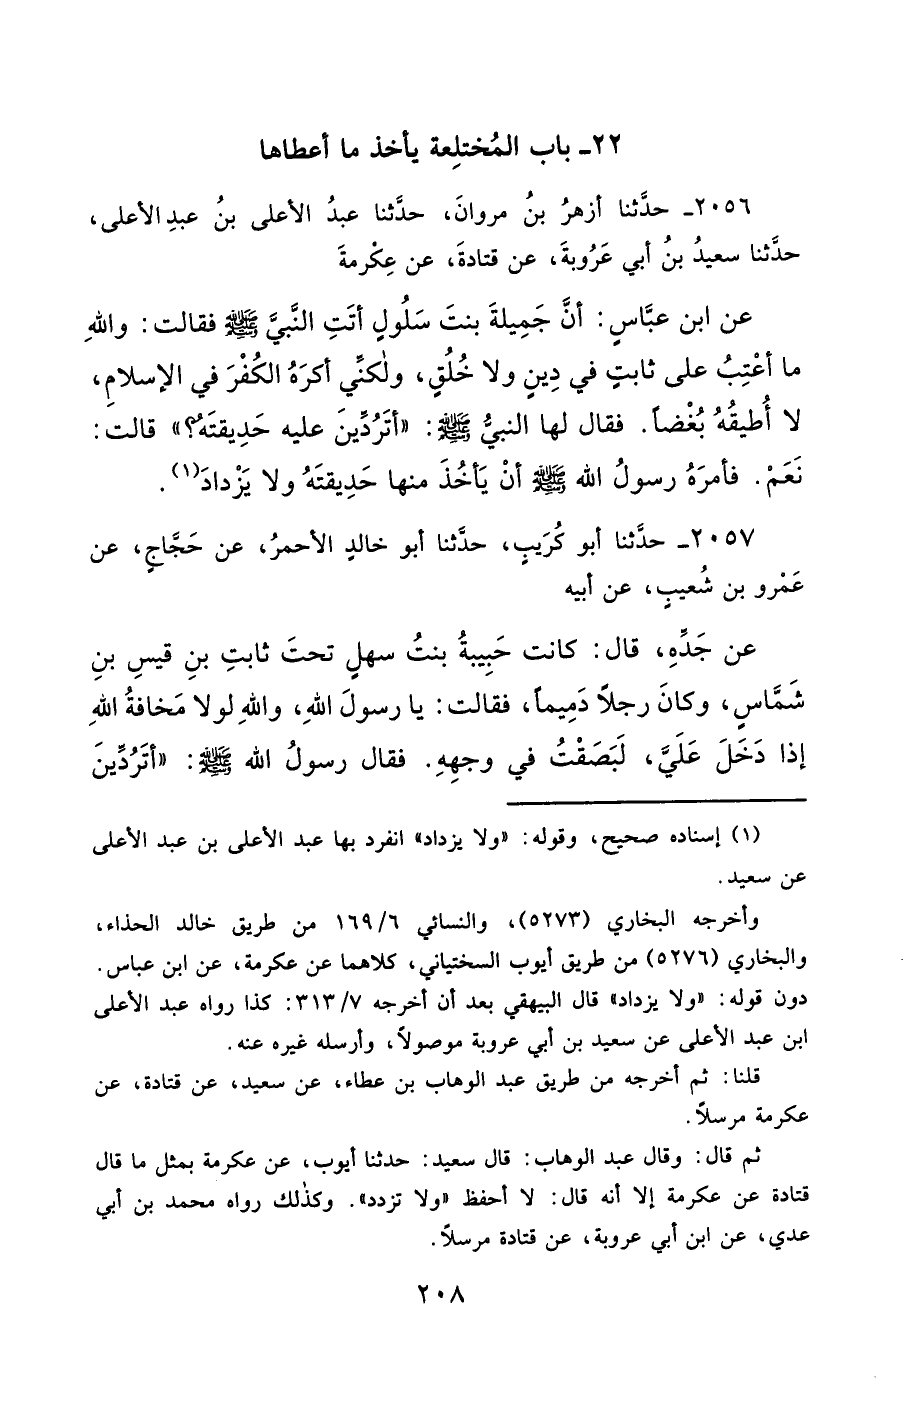 ٢٢ـ باب المُختلِعة يأخذ ما أعطاها
٢٠٥٦ـ حدَّثنا أزهرُ بنُ مروانَ، حدَّثنا عبدُ الأعلى بنُ عبدِ الأعلى،
حدَّثنا سعيدُ بنُ أبي عَرُوبةَ، عن قتادةَ، عن عِكْرمةَ
عن ابن عبَّاسٍ: أنَّ جَمِيلةَ بنتَ سَلُولٍ أتَتِ النَّبيَّ ﷺ فقالت: واللهِ
ما أعْتِبُ على ثابتٍ في دِينٍ ولا خُلُقٍ، ولٰكنِّي أكرَهُ الكُفْرَ في الإسلامِ،
لا أُطيقُهُ بُغْضاً. فقال لها النبيُّ ﷺ: «أتَرُدِّينَ عليه حَدِيقتَهُ؟» قالت:
نَعَمْ. فأمرَهُ رسولُ الله ﷺ أنْ يَأخُذَ منها حَدِيقتَهُ ولا يَزْدادَ(١).
٢٠٥٧ـ حدَّثنا أبو كُرَيبٍ، حدَّثنا أبو خالدٍ الأحمرُ، عن حَجَّاجٍ، عن
عَمْرو بن شُعيبٍ، عن أبيه
عن جَدِّهِ، قال: كانت حَبِيبةُ بنتُ سهلٍ تحتَ ثابتِ بنِ قيسِ بنِ
شَمَّاسٍ، وكانَ رجلاً دَمِيماً، فقالت: يا رسولَ اللهِ، واللهِ لولا مَخافةُ اللهِ
إذا دَخَلَ عَلَيَّ، لَبَصَقْتُ في وجهِهِ. فقال رسولُ الله ﷺ: «أتَرُدِّينَ
(١) إسناده صحيح، وقوله: «ولا يزداد» انفرد بها عبد الأعلى بن عبد الأعلى
عن سعيد.
وأخرجه البخاري (٥٢٧٣)، والنسائي ١٦٩/٦ من طريق خالد الحذاء،
والبخاري (٥٢٧٦) من طريق أيوب السختياني، كلاهما عن عكرمة، عن ابن عباس.
دون قوله: «ولا يزداد» قال البيهقي بعد أن أخرجه ٣١٣/٧: كذا رواه عبد الأعلى
ابن عبد الأعلى عن سعيد بن أبي عروبة موصولاً، وأرسله غيره عنه.
قلنا: ثم أخرجه من طريق عبد الوهاب بن عطاء، عن سعيد، عن قتادة، عن
عكرمة مرسلاً.
ثم قال: وقال عبد الوهاب: قال سعيد: حدثنا أيوب، عن عكرمة بمثل ما قال
قتادة عن عكرمة إلا أنه قال: لا أحفظ «ولا تزدد». وكذٰلك رواه محمد بن أبي
عدي، عن ابن أبي عروبة، عن قتادة مرسلاً.
٢٠٨